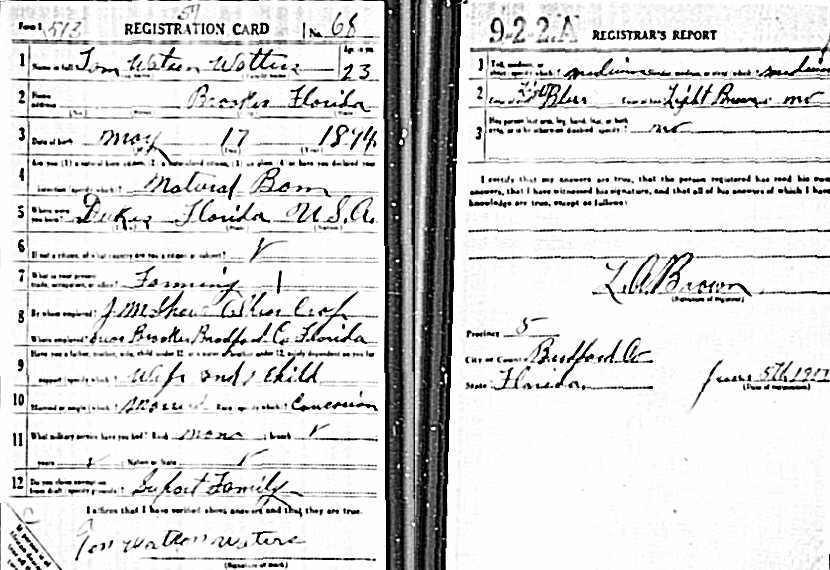 Form 1 513 REGISTRATION CARD No. 68
1 Name in full Tom Watson Watters Age in yrs. 23
2 Home address Brooker Florida
3 Date of birth May 17 1894
Are you (1) a natural born citizen, (2) a naturalized citizen, (3) an alien, (4) or have you declared your
4 intention (specify which)? Natural Born
5 Where were you born? Dukes Florida U.S.A.
6 If not a citizen, of what country are you a citizen or subject? ✓
7 What is your present trade, occupation, or office? Farming 1
8 By whom employed? J M Shaw Crop
Where employed? near Brooker Bradford Co Florida
Have you a father, mother, wife, child under 12, or a sister or brother under 12, solely dependent on you for
9 support (specify which)? Wife and 1 child
10 Married or single (which)? Married Race (specify which)? Caucasian
11 What military service have you had? Rank none ; branch ✓
years ✓ Nation or State ✓
12 Do you claim exemption from draft (specify grounds)? Suport Family
I affirm that I have verified above answers and that they are true.
Tom Watson Waters
(Signature or mark)
If person is of
9-2-2-A REGISTRAR'S REPORT
1 Tall, medium, or short (specify which)? medium Slender, medium, or stout (which)? medium
2 Color of eyes Light Blue Color of hair Light Brown no
3 Has person lost arm, leg, hand, foot, or both eyes, or is he otherwise disabled (specify)? no
I certify that my answers are true, that the person registered has read his own
answers, that I have witnessed his signature, and that all of his answers of which I have
knowledge are true, except as follows:
L. A. Brown
(Signature of registrar)
Precinct 5
City or County Bradford Co
State Florida June 5th 1917
(Date of registration)